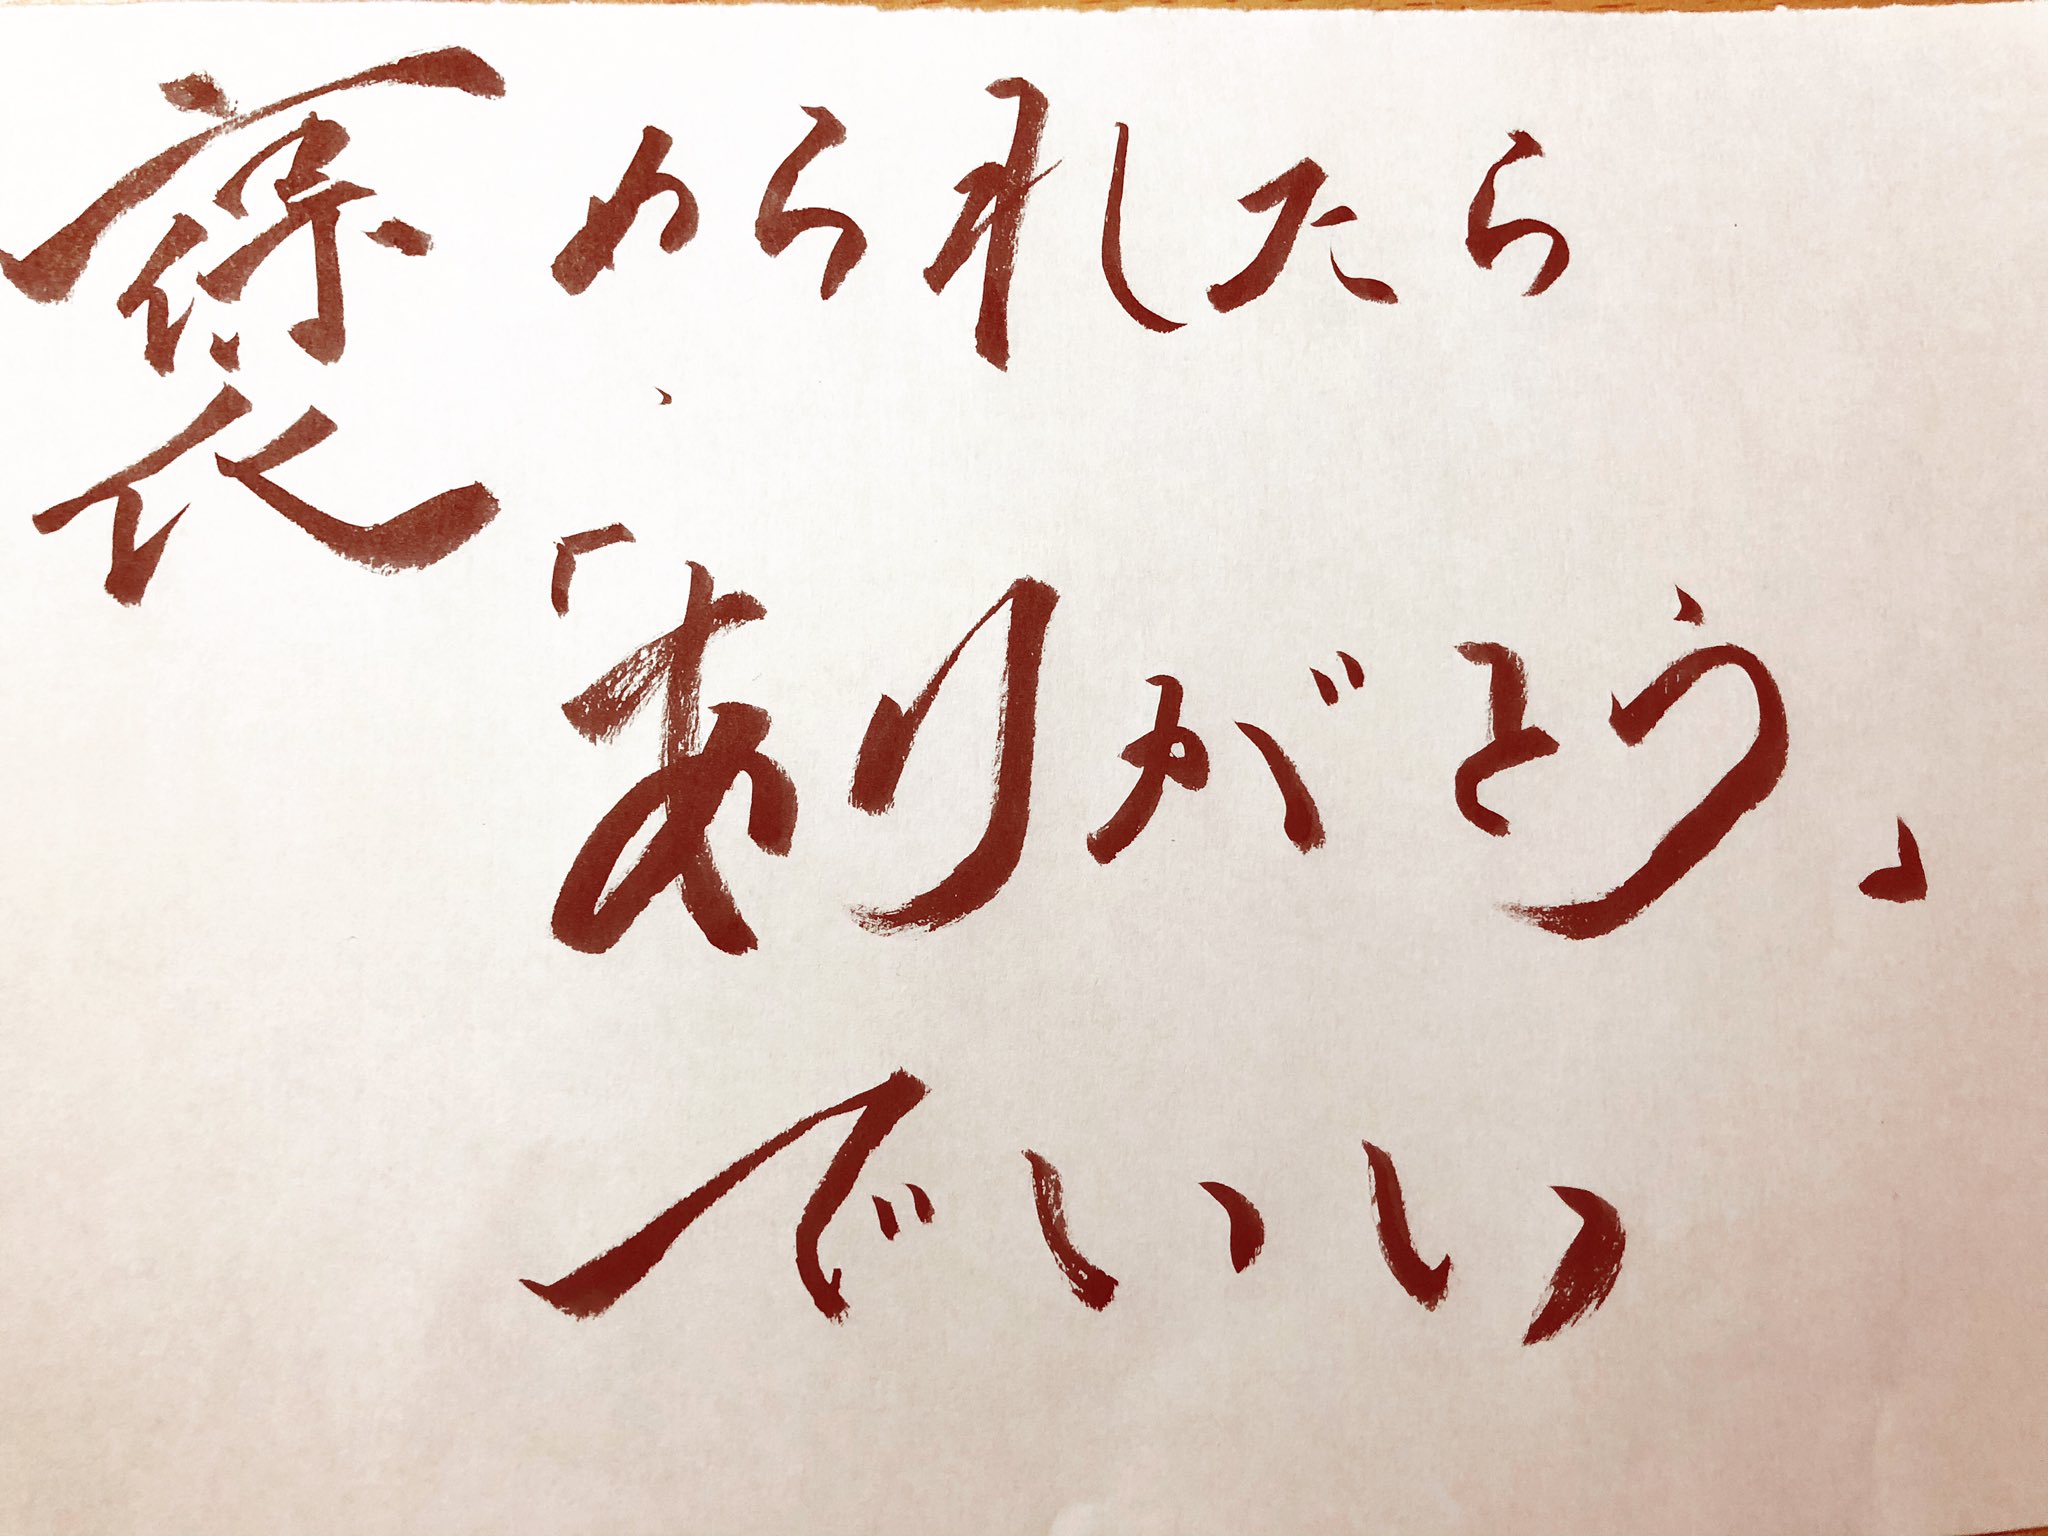 褒められたら
「ありがとう」
でいい